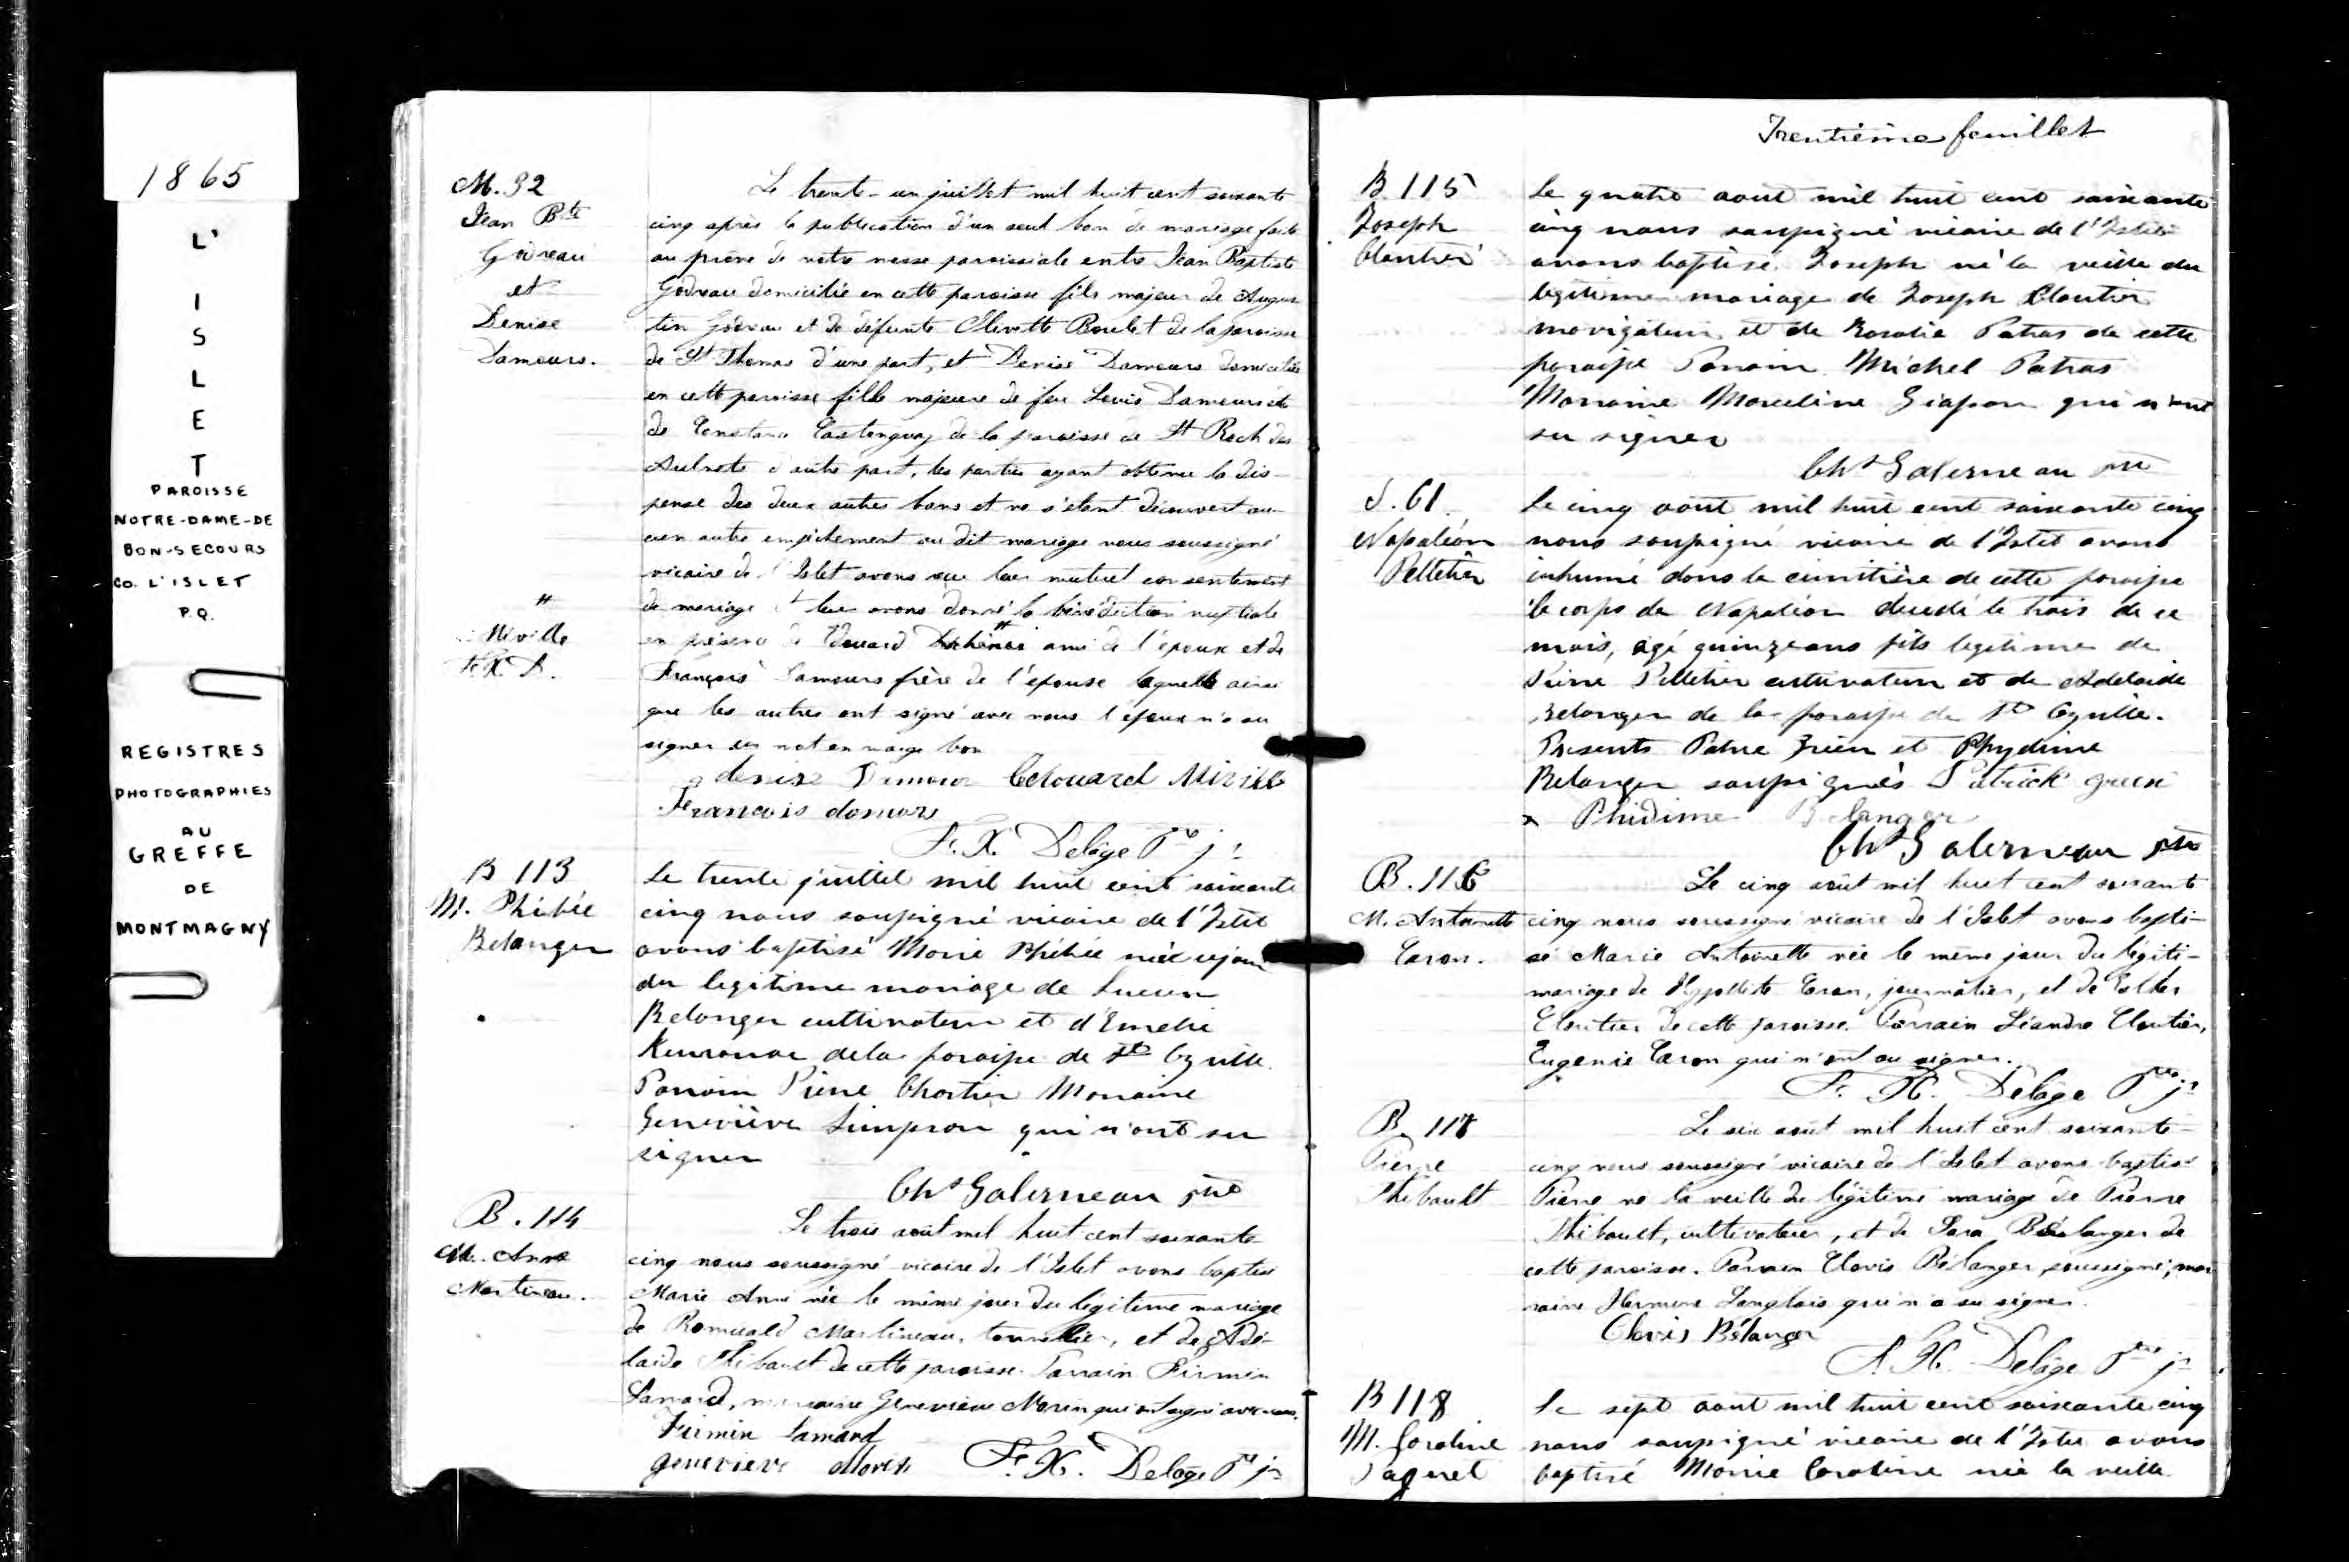 1865
L'
I
S
L
E
T
PAROISSE
NOTRE-DAME-DE
BON-SECOURS
CO. L'ISLET
P.Q.
REGISTRES
PHOTOGRAPHIES
AU
GREFFE
DE
MONTMAGNY
M. 32
Jean Bte
Godreau
et
Denise
Damours.
Le trente-un juillet mil huit cent soixante
cinq après la publication d'un seul ban de mariage faite
au prône de notre messe paroissiale entre Jean Baptiste
Godreau domicilié en cette paroisse fils majeur de Augus
tin Godreau et de défunte Boulet de la paroisse
de St Thomas d'une part, et Denise Damours domiciliée
en cette paroisse fille majeure de feu Louis Damours et
de Constance Castonguay de la paroisse de St Roch des
Aulnets d'autre part, les parties ayant obtenu la dis-
pense des deux autres bans et ne s'étant découvert au-
cun autre empêchement au dit mariage nous soussigné
vicaire de l'Islet avons reçu leur mutuel consentement
de mariage et leur avons donné la bénédiction nuptiale
en présence de Edouard ami de l'époux et de
François Damours frère de l'épouse laquelle ainsi
que les autres ont signé avec nous l'époux n'a su
signer un mot en marge bon
"
Miville
F. X. D.
denise Damour Edouard Miville
Francois damours
F. X. Delâge Ptre
B 113
M. Phébée
Belanger
Le trente juillet mil huit cent soixante
cinq nous soussigné vicaire de l'Islet
avons baptisé Marie Phébée née ce jour
du legitime mariage de Lucien
Belanger cultivateur et d'Emelie
dela paroisse de St Cyrille.
Parrain Pierre Chartier Marraine
Geneviève Simpson qui n'ont su
signer
Chs Galerneau ptre
B. 114
M. Anne
Martineau.
Le trois août mil huit cent soixante
cinq nous soussigné vicaire de l'Islet avons baptisé
Marie Anne née le même jour du légitime mariage
de Romuald Martineau, tonnellier, et de Adé-
laïde Thibault de cette paroisse. Parrain Firmin
Lamard, marraine Geneviève Morin qui ont signé avec nous.
Firmin Lamard
genevieve Morin F. X. Delâge Ptre
Trentième feuillet
B. 115
Joseph
Cloutier
Le quatre août mil huit cent soixante
cinq nous soussigné vicaire de l'Islet
avons baptisé Joseph né la veille du
legitime mariage de Joseph Cloutier
navigateur et de Rosalie Patras de cette
paroisse Parrain Michel Patras
Marraine Marceline Giasson qui n'ont
su signer
Chs Galerneau ptre
S. 61.
Napoléon
Pelletier
Le cinq août mil huit cent soixante cinq
nous soussigné vicaire de l'Islet avons
inhumé dans le cimitière de cette paroisse
le corps de Napoléon decedé le trois de ce
mois, agé quinze ans fils legitime de
Pierre Pelletier cultivateur et de Adelaide
Belanger de la paroisse de St Cyrille.
Presents Patrice Grien et Phydime
Belanger soussignés Patrick green
x Phidime Belanger
Chs Galerneau ptre
B. 116
M. Antoinette
Caron.
Le cinq août mil huit cent soixante
cinq nous soussigné vicaire de l'Islet avons bapti-
sé Marie Antoinette née le même jour du légiti-
mariage de Hyppolite Caron, journalier, et de Esther
Cloutier de cette paroisse. Parrain Léandre Cloutier,
Eugenie Caron qui n'ont su signer.
F. X. Delâge Ptre
B. 117
Pierre
Thibault
Le six août mil huit cent soixante-
cinq nous soussigné vicaire de l'Islet avons baptisé
Pierre né la veille du légitime mariage de Pierre
Thibault, cultivateur, et de Sara Bélanger de
cette paroisse. Parrain Clovis Bélanger soussigné, mar
raine Hermine Langlois qui n'a su signer.
Clovis Bélanger
F. X. Delâge Ptre
B 118
M. Caroline
Paquet
Le sept août mil huit cent soixante cinq
nous soussigné vicaire de l'Islet avons
baptisé Marie Caroline née la veille